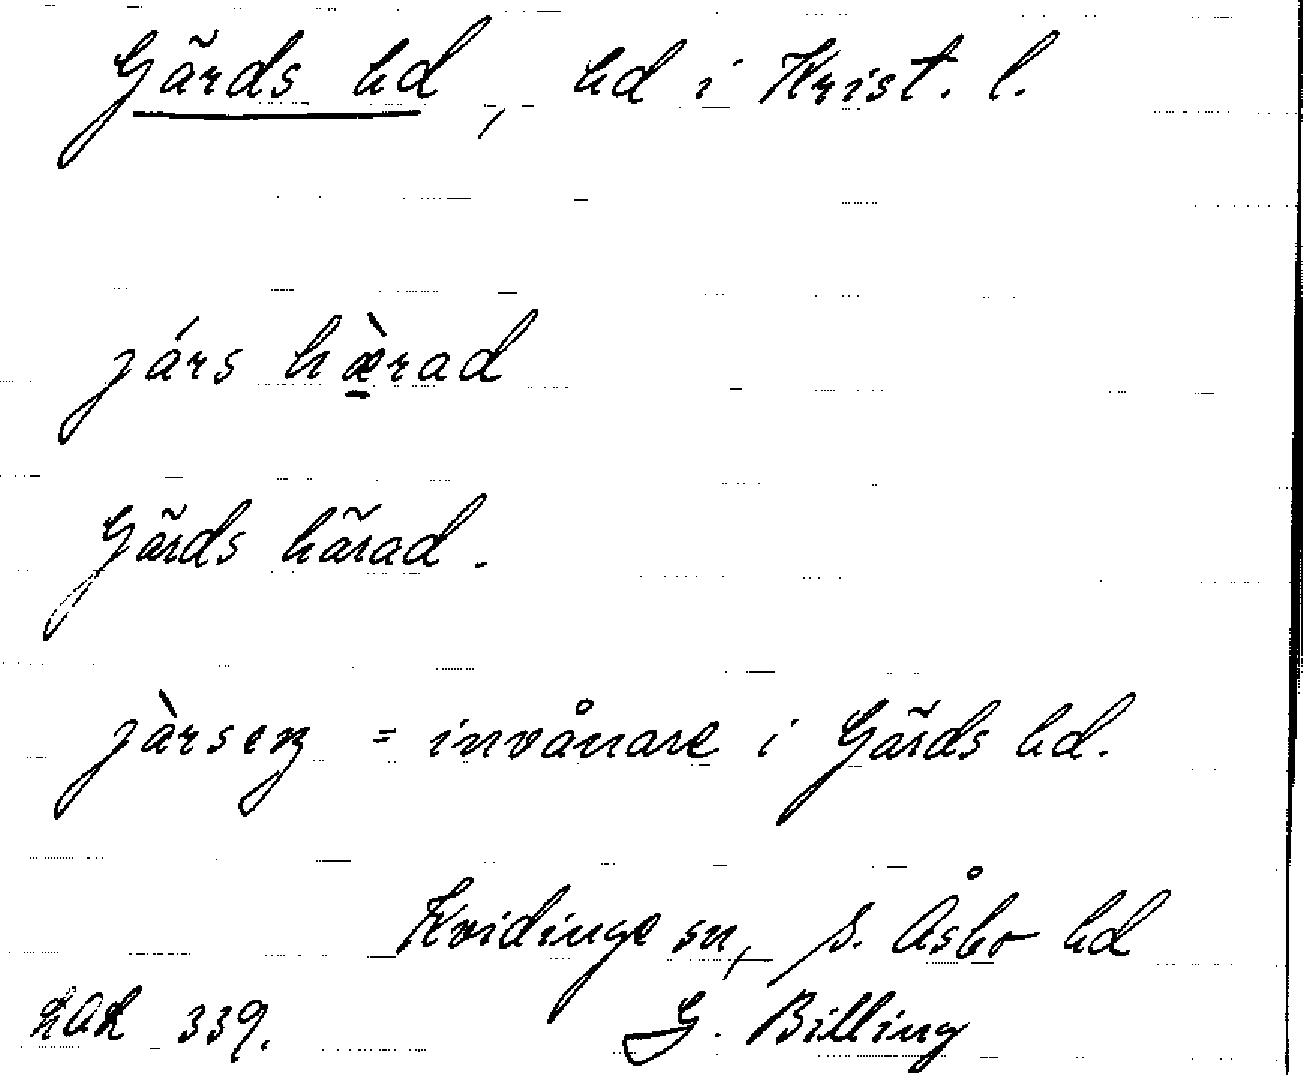 Gärds hd, hd i Krist. l.
járs hæ̠̀rad
Gärds härad.
jàrsɩŋ = invånare i Gärds hd.
Kvidinge sn, S. Åsbo hd
LAL 339. G. Billing